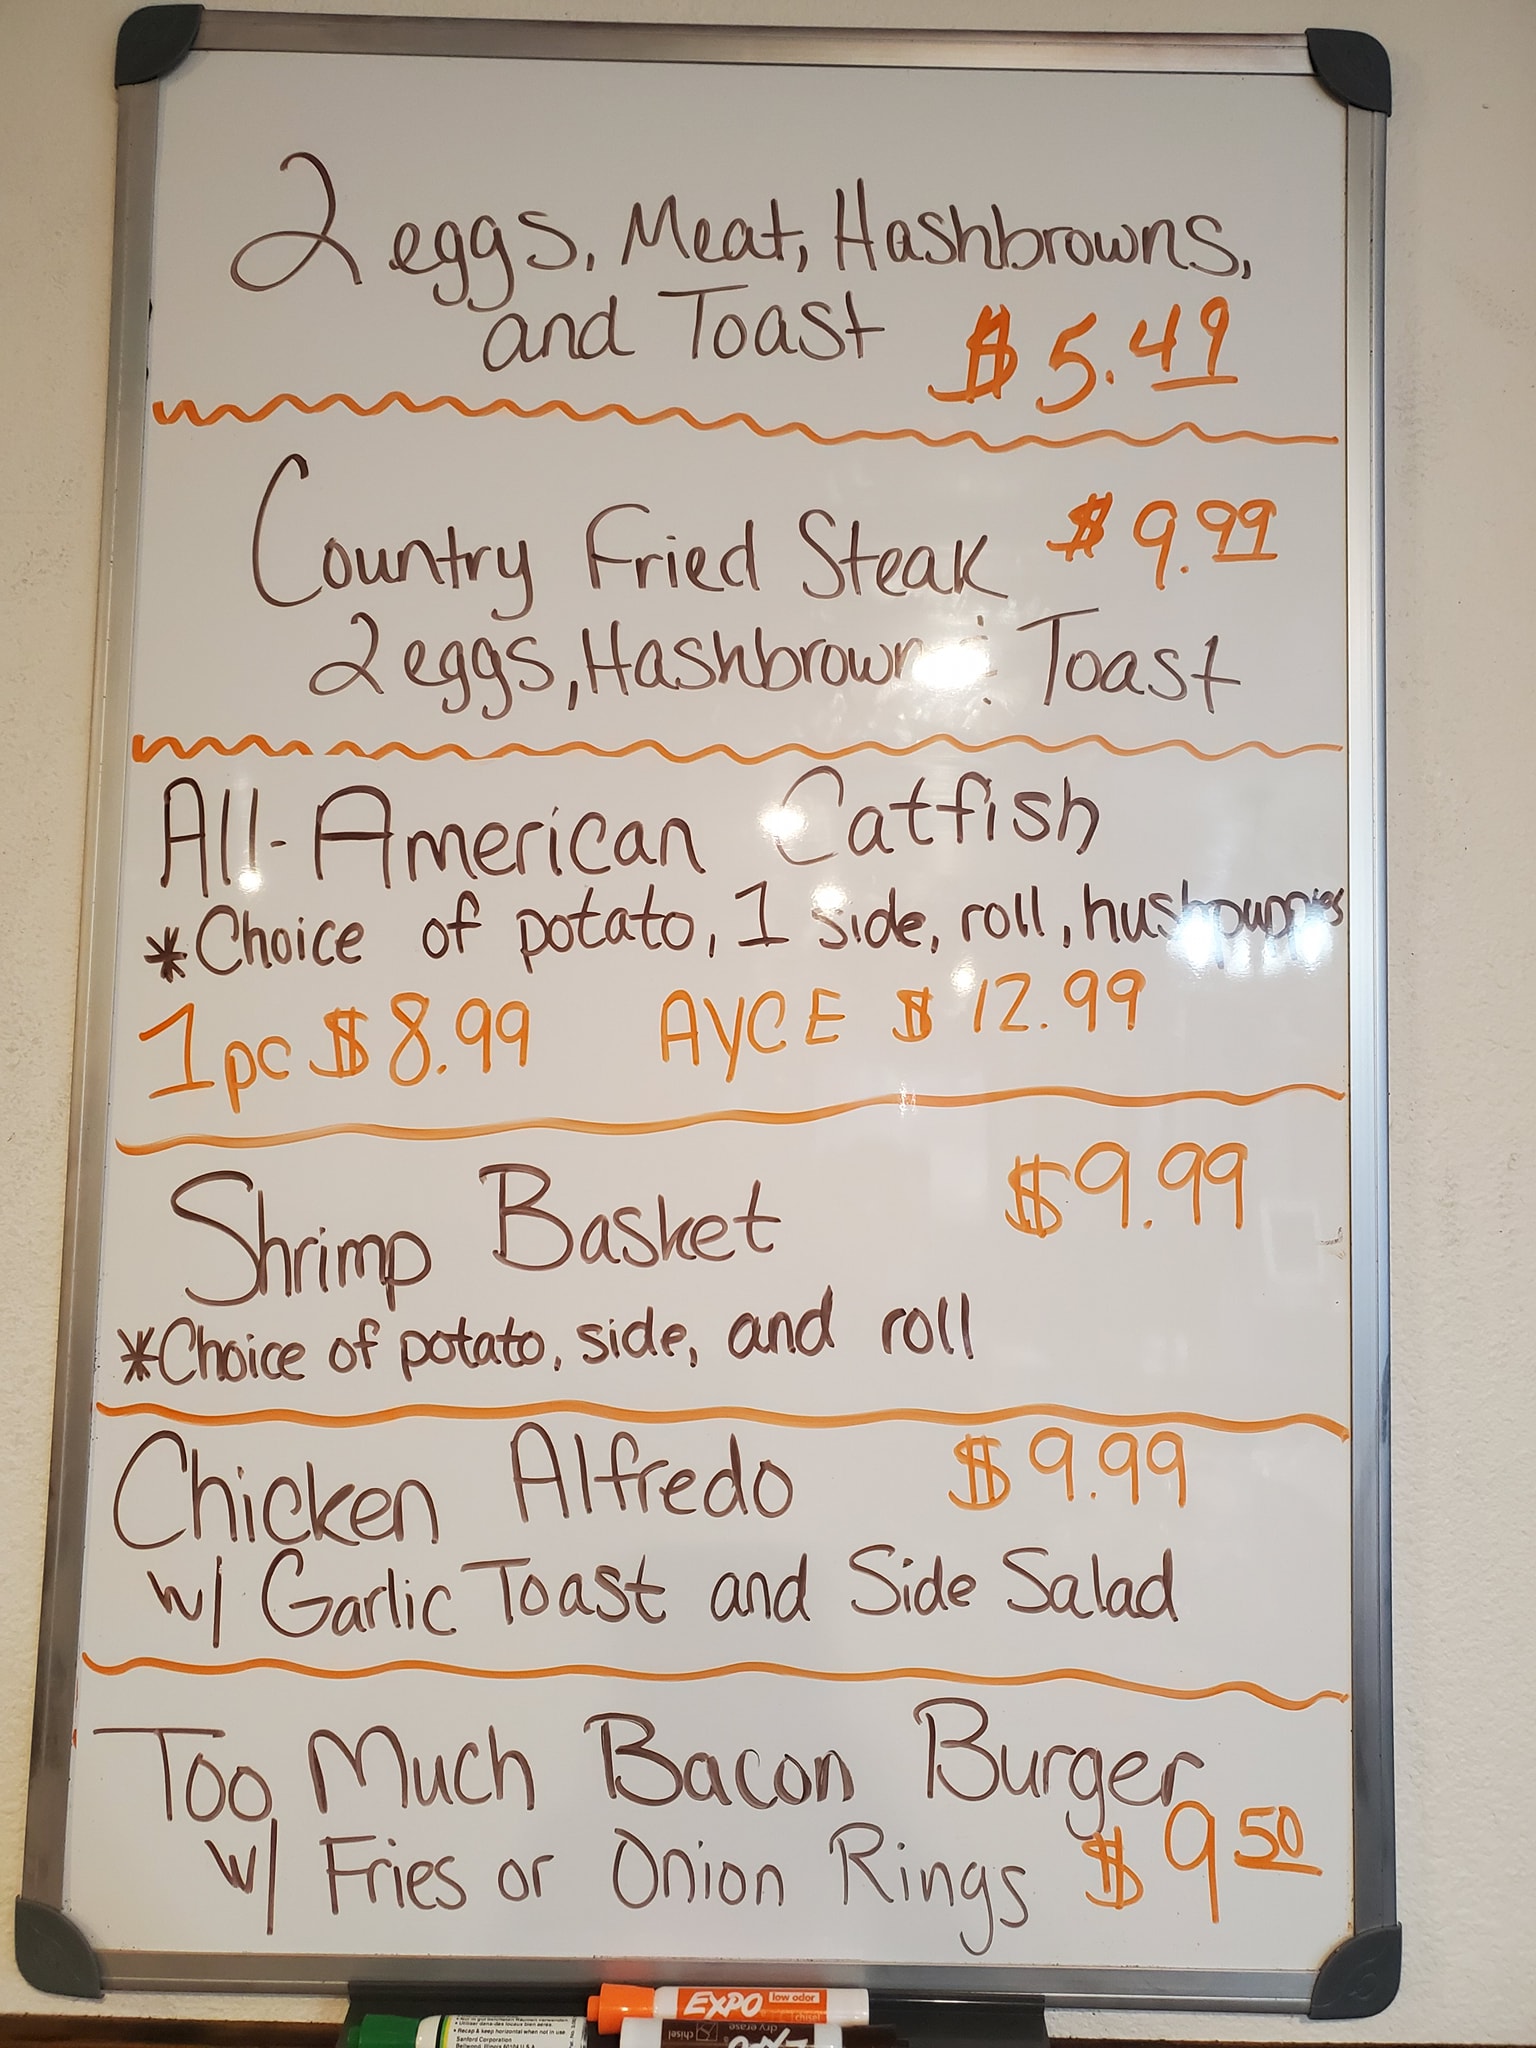 2 eggs, Meat, Hashbrowns,
and Toast $5.49
Country Fried Steak $9.99
2 eggs, Hashbrown & Toast
All-American Catfish
*Choice of potato, 1 side, roll, hushpuppies
1pc $8.99 AYCE $12.99
Shrimp Basket $9.99
*Choice of potato, side, and roll
Chicken Alfredo $9.99
w/ Garlic Toast and Side Salad
Too Much Bacon Burger
w/ Fries or Onion Rings $9 50
EXPO low odor
chisel
chisel dry erase
EXPO
• Recap & keep horizontal when not in use
Sanford Corporation
Bellwood, Illinois 60104 U.S.A.